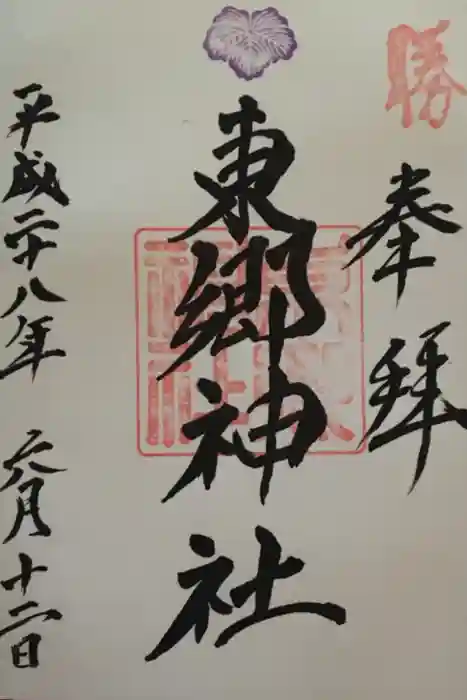 勝
奉拝
東郷神社
東郷神社
平成二十八年 六月十二日